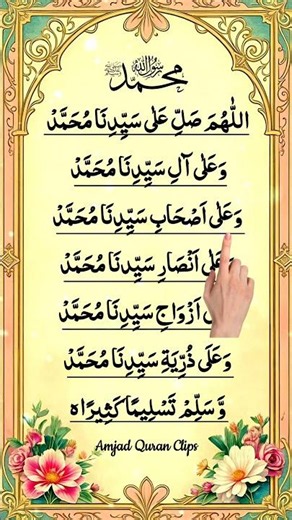 محمد رسول الله ﷺ
اللّٰهُمَ صَلِّ عَلٰى سَيِّدِنَا مُحَمَّدْ
وَعَلٰى آلِ سَيِّدِنَا مُحَمَّدْ
وَعَلٰى اَصْحَابِ سَيِّدِنَا مُحَمَّدْ
وَعَلٰى اَنْصَارِ سَيِّدِنَا مُحَمَّدْ
اَزْوَاجِ سَيِّدِنَا مُحَمَّدْ
وَعَلَى ذُرِّيَةِ سَيِّدِنَا مُحَمَّدْ
وَّسَلِّمْ تَسْلِيمًا كَثِيرًا ہ
Amjad Quran Clips